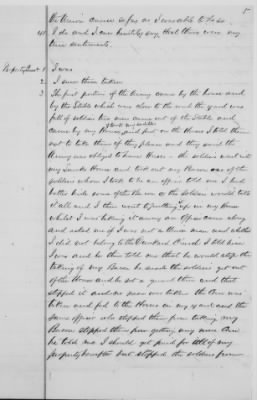 5
the Union cause so far as I was able to do so.
40 I do and I can truly say that these were my
true sentiments.
1 I was
2 I saw them taken
3 The first portion of the Army came by the house and
by the Stable which was close to the road the yard was
full of soldiers two men came out of the Stable and
came by my Horses and put on the Horses I told them
not to take them if they please and they said the
Army was obliged to have Horses. the soldiers went into
my Smoke House and took out my Bacon one of the
soldiers whom I took to be an officer told me I had
better hide some of the Bacon or the Soldiers would take
it all and I then went to putting up in my house
whilst I was taking it away an Officer came along
and asked me if I was not a Union man and whether
I did not belong to the Dunkard Church I told him
I was and he then told me that he would stop the
taking of my Bacon he made the soldiers get out
of the House and he set a guard there and that
stopped it and no more was taken the Corn was
taken and fed to the Horses in my and the
same officer who stopped them from taking my
Bacon stopped them from getting any more Corn
he told me I should get paid for all of my
property but stopped the soldiers from